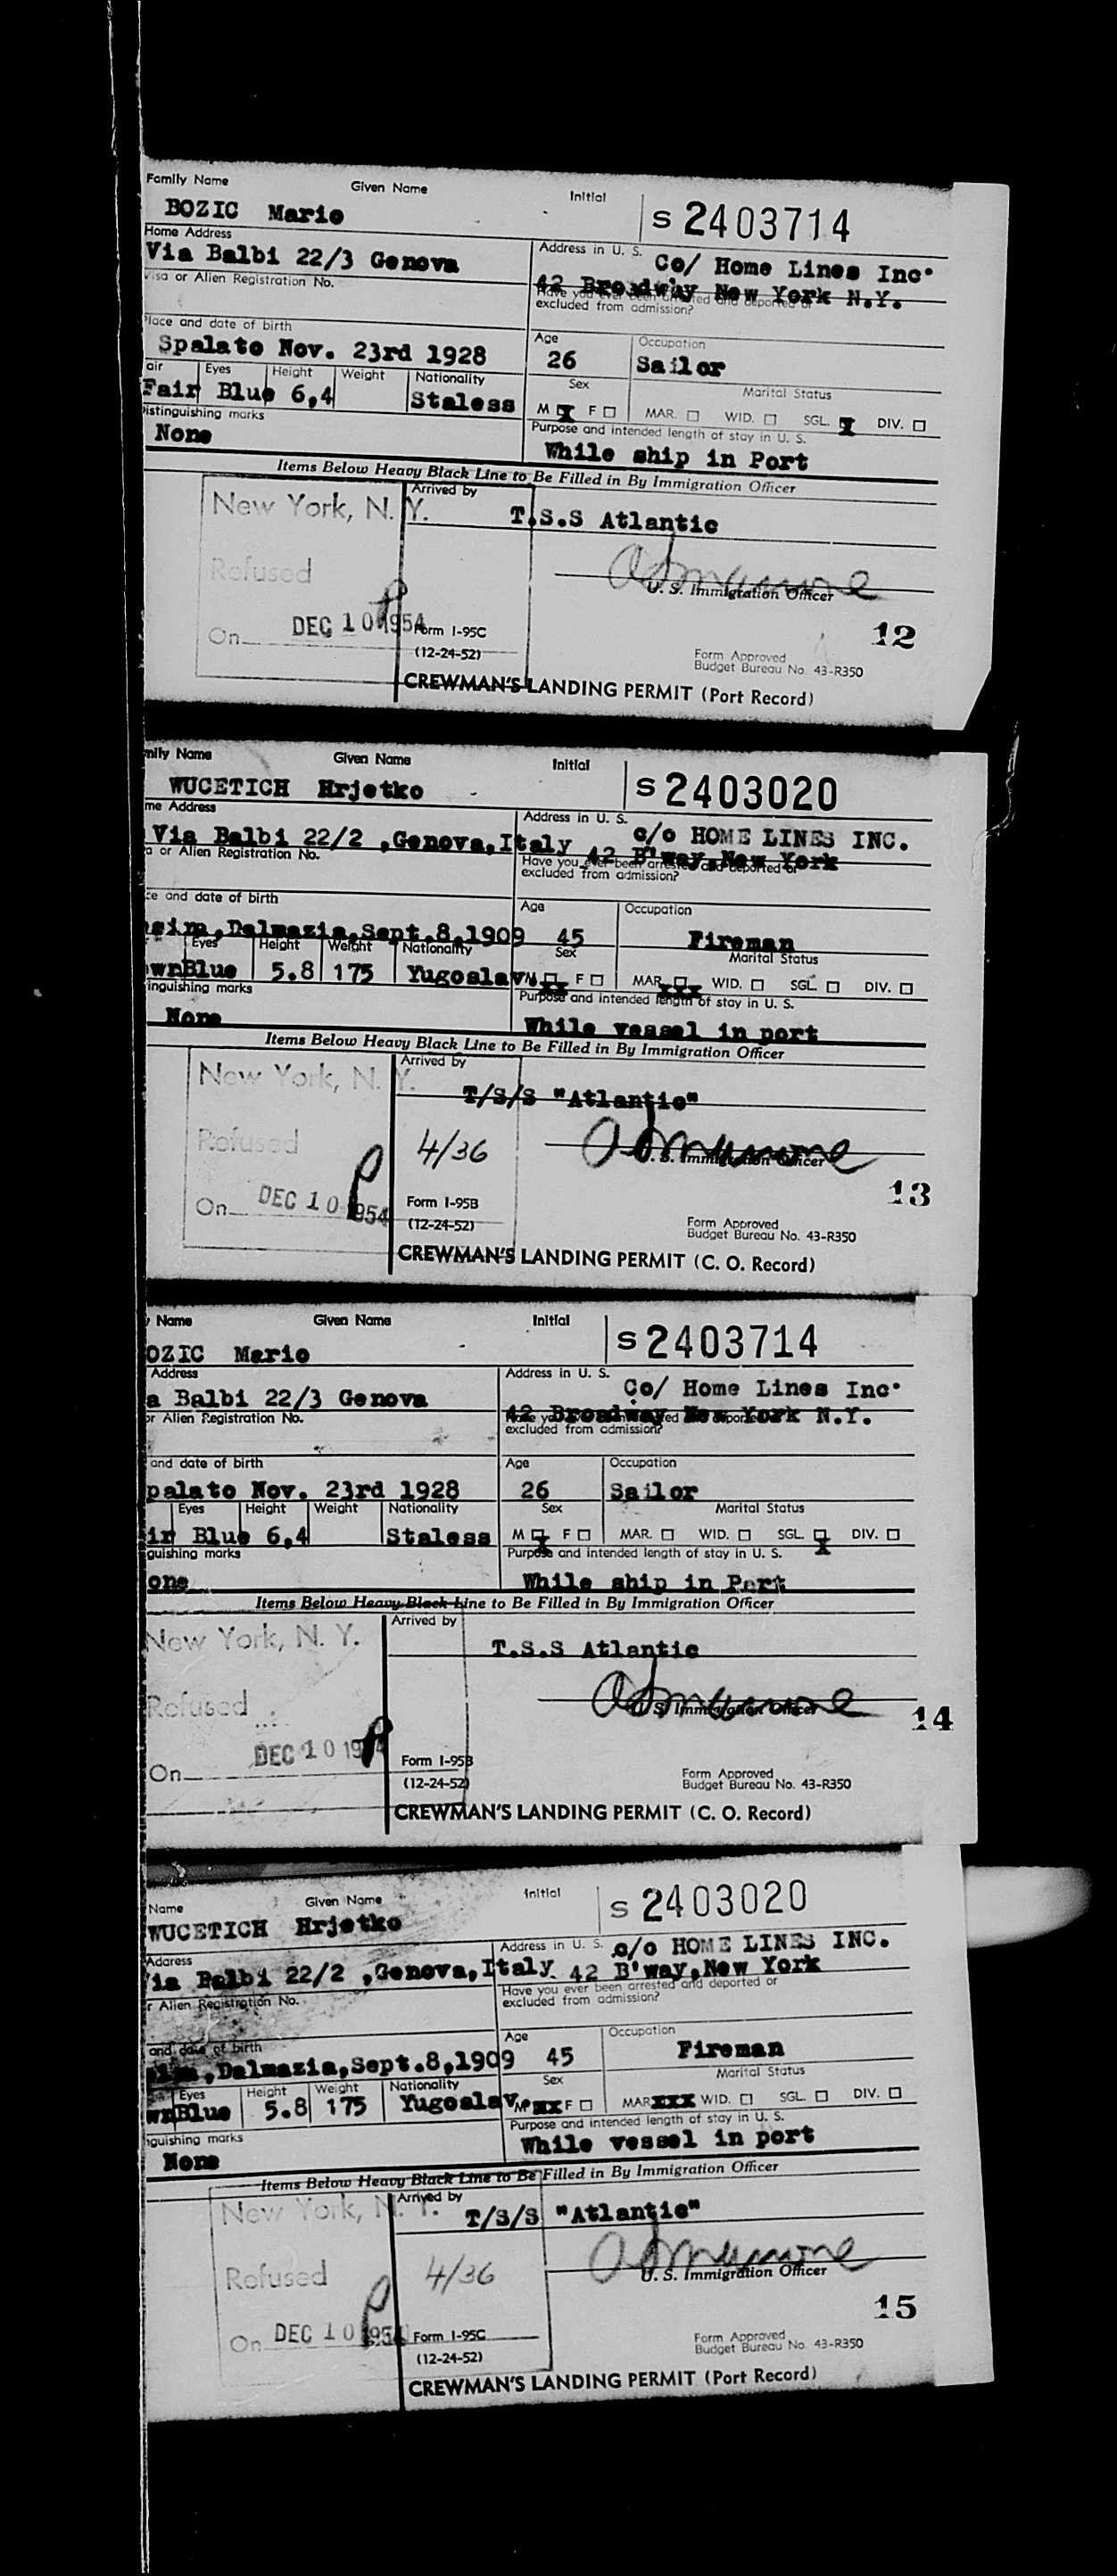 Family Name Given Name Initial
BOZIC Mario S 2403714
Home Address Address in U. S. Co/ Home Lines Inc.
Via Balbi 22/3 Genova 42 Broadway New York N.Y.
Visa or Alien Registration No. Have you ever been arrested and deported or
excluded from admission?
Place and date of birth Age Occupation
Spalato Nov. 23rd 1928 26 Sailor
air Eyes Height Weight Nationality Sex Marital Status
Fair Blue 6,4 Staless M X F MAR. WID. SGL. X DIV.
istinguishing marks Purpose and intended length of stay in U. S.
None While ship in Port
Items Below Heavy Black Line to Be Filled in By Immigration Officer
New York, N. Y. Arrived by
T.S.S Atlantic
Refused
U. S. Immigration Officer
On DEC 10 1954 Form I-95C 12
(12-24-52) Form Approved
Budget Bureau No. 43-R350
CREWMAN'S LANDING PERMIT (Port Record)
mily Name Given Name Initial
WUCETICH Hrjetko S 2403020
me Address Address in U. S. c/o HOME LINES INC.
Via Balbi 22/2 ,Genova,Italy 42 B'way,New York
a or Alien Registration No. Have you ever been arrested and deported or
excluded from admission?
ce and date of birth Age Occupation
Dalmazia,Sept.8,1909 45 Fireman
Eyes Height Weight Nationality Sex Marital Status
wnBlue 5.8 175 Yugoslav M XX F MAR. XXX WID. SGL. DIV.
inguishing marks Purpose and intended length of stay in U. S.
None While vessel in port
Items Below Heavy Black Line to Be Filled in By Immigration Officer
New York, N. Y. Arrived by
T/S/S "Atlantic"
Refused 4/36
U. S. Immigration Officer
On DEC 10 1954 Form I-95B 13
(12-24-52) Form Approved
Budget Bureau No. 43-R350
CREWMAN'S LANDING PERMIT (C. O. Record)
y Name Given Name Initial
OZIC Mario S 2403714
Address Address in U. S. Co/ Home Lines Inc.
a Balbi 22/3 Genova 42 Broadway New York N.Y.
or Alien Registration No.
excluded from admission?
and date of birth Age Occupation
palato Nov. 23rd 1928 26 Sailor
Eyes Height Weight Nationality Sex Marital Status
ir Blue 6,4 Staless M X F MAR. WID. SGL. X DIV.
guishing marks Purpose and intended length of stay in U. S.
one While ship in Port
Items Below Heavy Black Line to Be Filled in By Immigration Officer
New York, N. Y. Arrived by
T.S.S Atlantic
Refused
U. S. Immigration Officer
14
On DEC 10 1954 Form I-95B
(12-24-52) Form Approved
Budget Bureau No. 43-R350
CREWMAN'S LANDING PERMIT (C. O. Record)
Name Given Name Initial
WUCETICH Hrjetko S 2403020
Address Address in U. S. c/o HOME LINES INC.
ia Balbi 22/2 ,Genova,Italy 42 B'way,New York
r Alien Registration No. Have you ever been arrested and deported or
excluded from admission?
and date of birth Age Occupation
,Dalmazia,Sept.8,1909 45 Fireman
Eyes Height Weight Nationality Sex Marital Status
wnBlue 5.8 175 Yugoslav M XX F MAR XXX WID. SGL. DIV.
nguishing marks Purpose and intended length of stay in U. S.
None While vessel in port
Items Below Heavy Black Line to Be Filled in By Immigration Officer
New York, N. Y. Arrived by
T/S/S "Atlantic"
Refused 4/36
U. S. Immigration Officer
15
On DEC 10 1954 Form I-95C
(12-24-52) Form Approved
Budget Bureau No. 43-R350
CREWMAN'S LANDING PERMIT (Port Record)